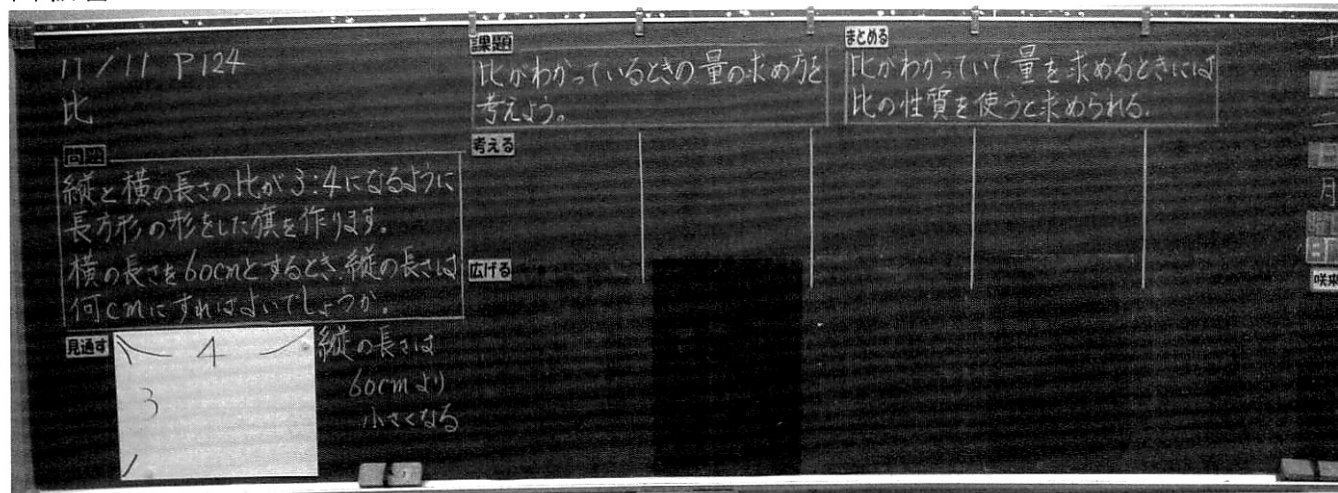 11/11 P124
比
問題
縦と横の長さの比が3:4になるように
長方形の形をした旗を作ります。
横の長さを60cmとするとき、縦の長さは
何cmにすればよいでしょうか。
見通す
4
3
縦の長さは
60cmより
小さくなる
課題
比がわかっているときの量の求め方を
考えよう。
考える
広げる
まとめる
比がわかっていて量を求めるときには
比の性質を使うと求められる。
月
曜